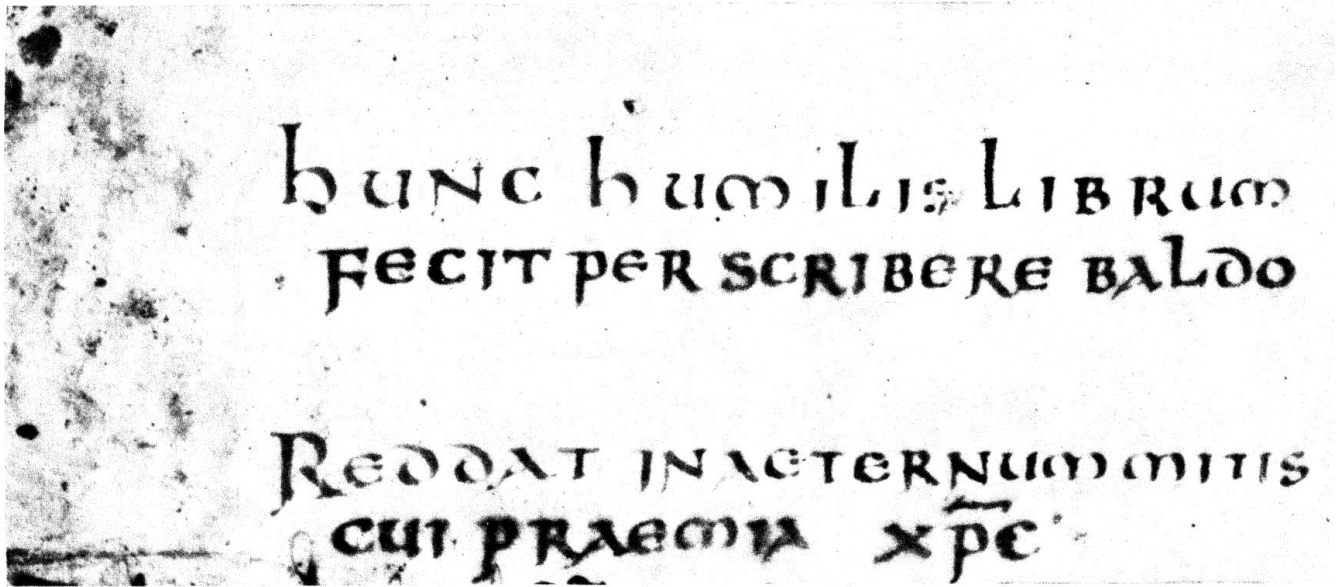 hUNC hUMILIS LIBRUM
FECIT PER SCRIBERE BALDO
REDDAT INAETERNUM MITIS
CUI PRAEMIA XP̅C